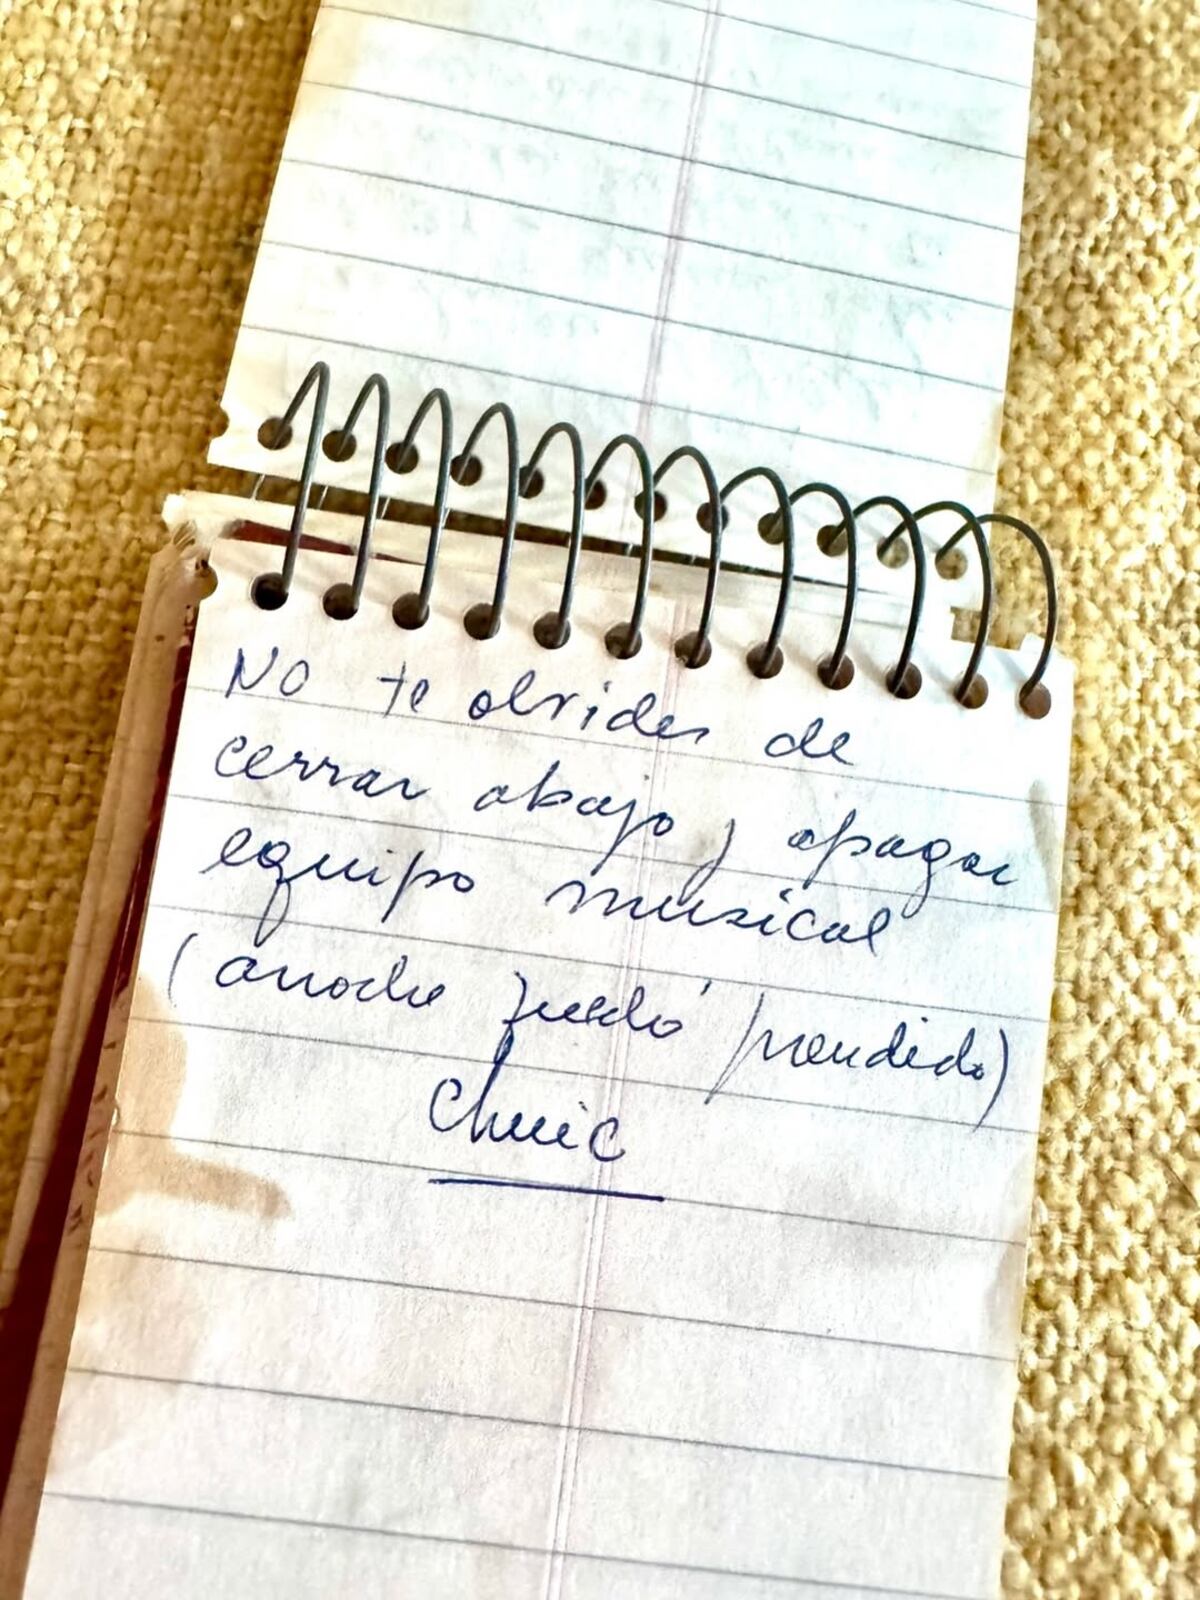 No te olvides de
cerrar abajo y apagar
equipo musical
(anoche quedó prendido)
Chuic